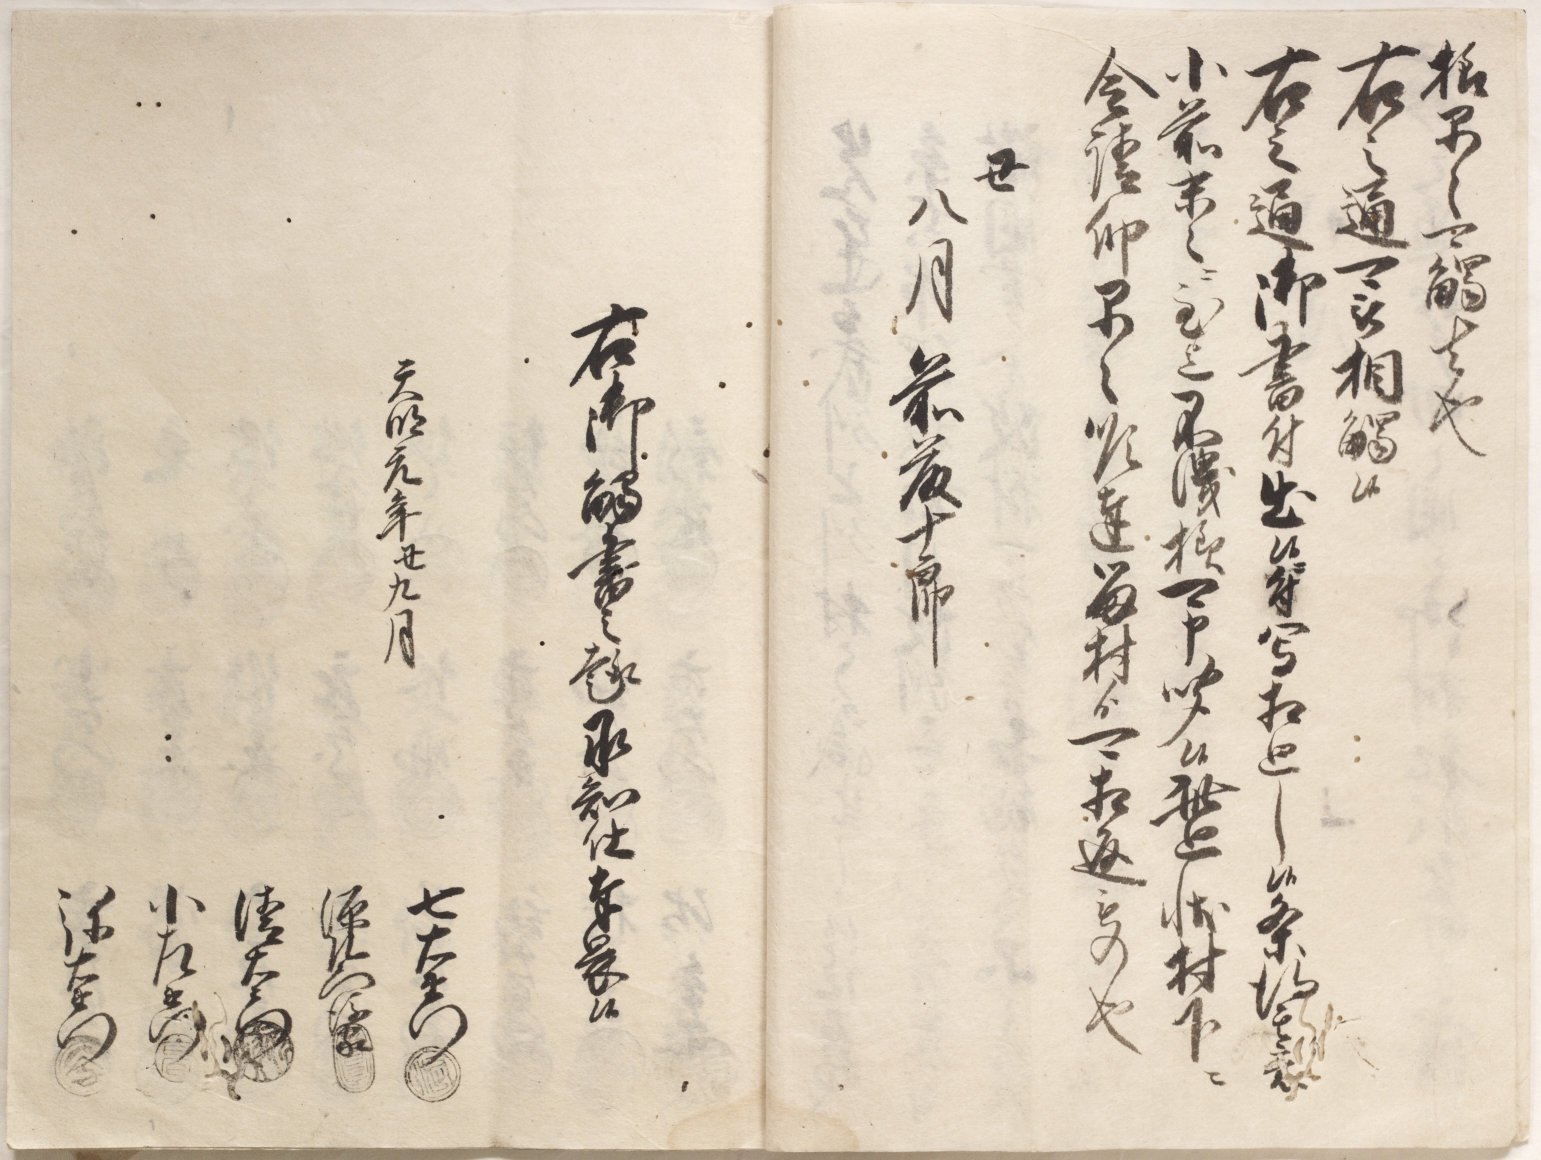 早々可觸者也
右之通可被相觸候
右之通御書付出候ニ付写相廻し候条得其意
小前末々ニ至迄不洩様可申聞候此廻状村下ニ
令請印早々順達留村より可相返もの也
丑
八月 前藤十郎
右御觸書之趣承知仕奉畏候
天明元年丑九月
七左衛門
清左衛門
小左衛門
弥左衛門